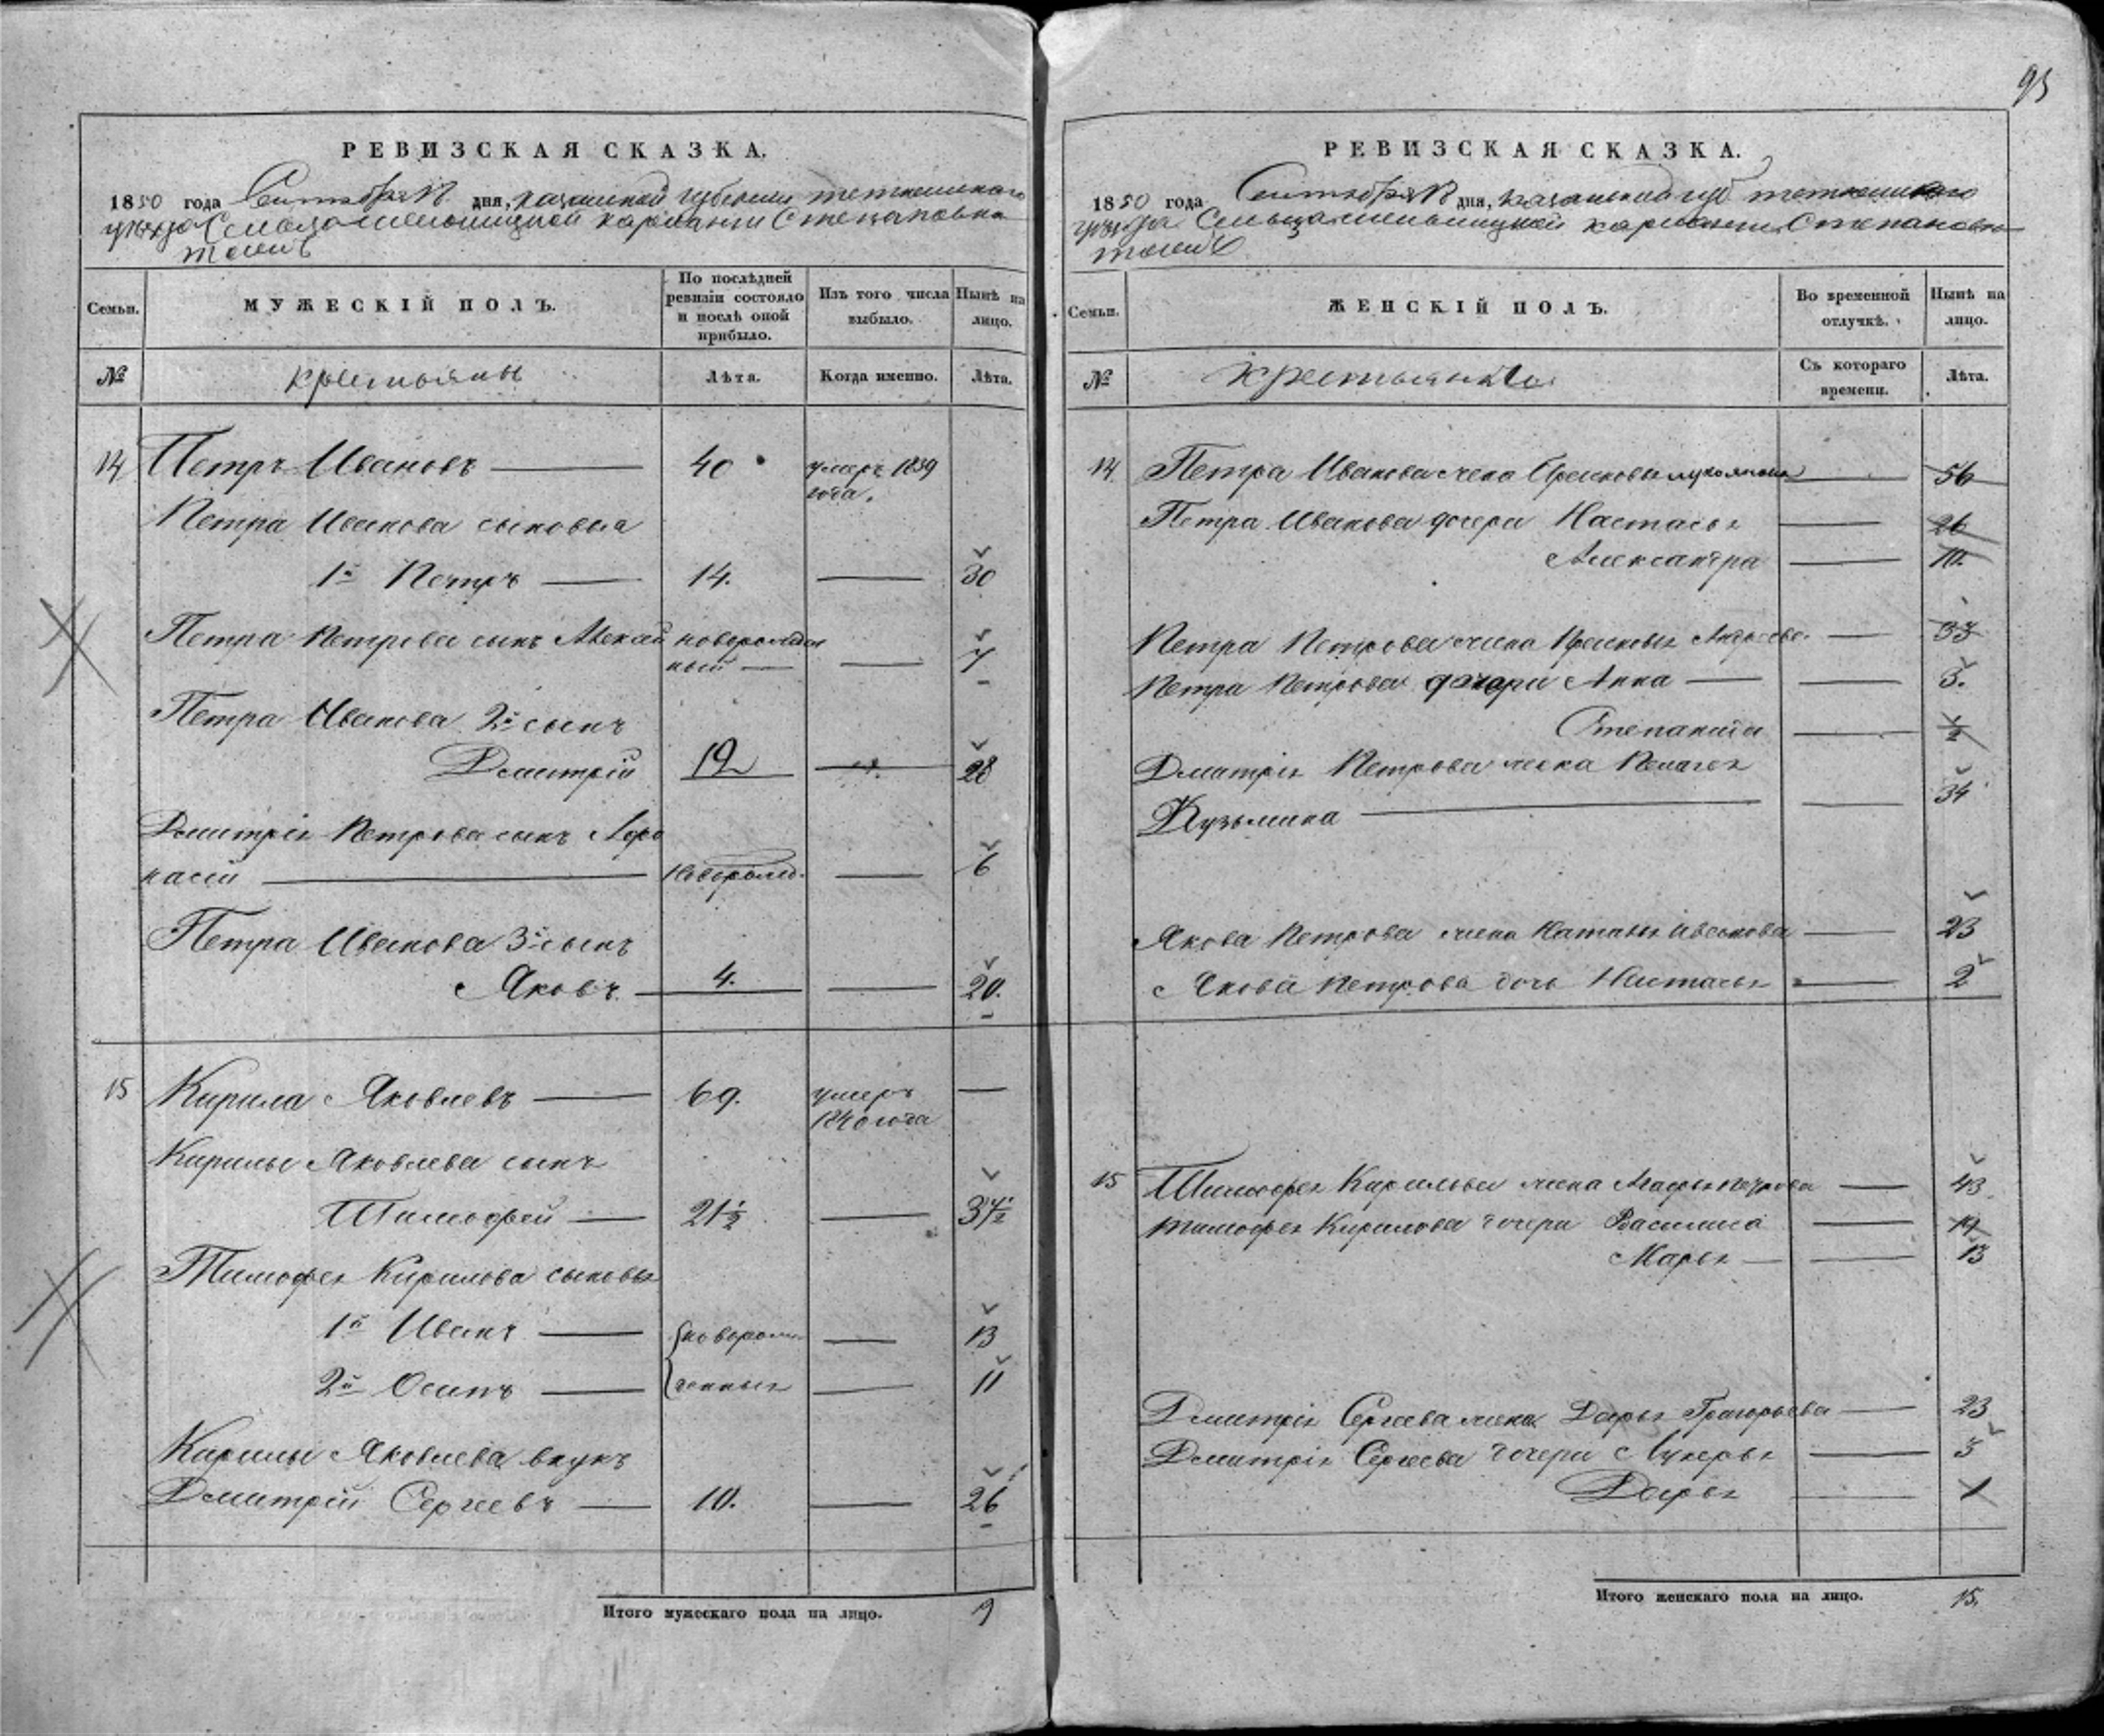 95
РЕВИЗСКАЯ СКАЗКА.
1850 года Сентября дня, казанской губернии тетюшскаго
уезда Сельца мельницкой кармалии Степановка
тожъ
Семьи. МУЖЕСКІЙ ПОЛЪ. По послѣдней ревизіи состояло и послѣ оной прибыло. Изъ того числа выбыло. Нынѣ на лицо.
№ крестьяны Лѣта. Когда именно. Лѣта.
14 Петръ Ивановъ 40 умеръ 1839
года.
Петра Иванова сыновья
1й Петръ 14. 30
Петра Петрова сынъ новорожден
ный 7
Петра Иванова 2й сынъ
Дмитрій 12 28
Дмитрія Петрова сынъ Афа
насій новорожд. 6
Петра Иванова 3й сынъ
Яковъ 4. 20.
15 Кирила Яковлевъ 69. умеръ
1840 года
Кирилы Яковлева сынъ
Тимофей 21½ 37½
Тимофея Кирилова сыновья
1й Иванъ новорож 13
2й Осипъ денныя 11
Кирилы Яковлева внукъ
Дмитрій Сергеевъ 10. 26
Итого мужескаго пола на лицо. 9
РЕВИЗСКАЯ СКАЗКА.
1850 года Сентября дня, казанской губ тетюшскаго
уезда Сельца мельницкой кармалии Степановка
тожъ
Семьи. ЖЕНСКІЙ ПОЛЪ. Во временной отлучкѣ. Нынѣ на лицо.
№ крестьянки Съ котораго времени. Лѣта.
14. Петра Иванова жена лукоянова 56
Петра Иванова дочери Настасья 26
Александра 10.
Петра Петрова жена Андреева 33
Петра Петрова дочери Анна 3.
Степанида ½
Дмитрія Петрова жена Пелагея
Кузьмина 34
Якова Петрова жена Наталья Иванова 23
Якова Петрова дочь Настасья 2
15 Тимофея Кирилова жена Агафья петрова 43
тимофея Кирилова дочери Василиса 19
Марья 13
Дмитрія Сергеева жена Дарья Григорьева 23
Дмитрія Сергеева дочери Лукерья 3
Дарья 1
Итого женскаго пола на лицо. 15.